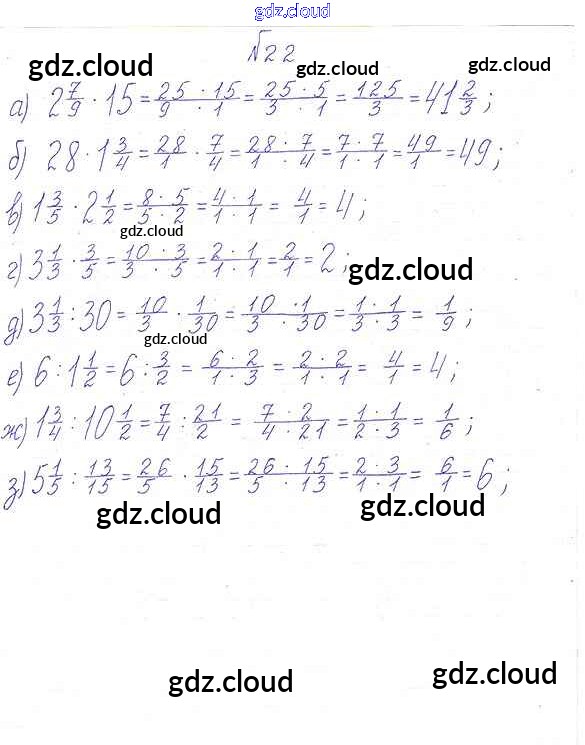 gdz.cloud
№22
gdz.cloud
gdz.cloud
а) 2 7/9 · 15 = 25/9 · 15/1 = 25 · 5/3 · 1 = 125/3 = 41 2/3;
gdz.cloud
б) 28 · 1 3/4 = 28/1 · 7/4 = 28 · 7/1 · 4 = 7 · 7/1 · 1 = 49/1 = 49;
в) 1 3/5 · 2 1/2 = 8 · 5/5 · 2 = 4 · 1/1 · 1 = 4/1 = 4;
gdz.cloud
г) 3 1/3 · 3/5 = 10 · 3/3 · 5 = 2 · 1/1 · 1 = 2/1 = 2;
gdz.cloud
д) 3 1/3 : 30 = 10/3 · 1/30 = 10 · 1/3 · 30 = 1 · 1/3 · 3 = 1/9;
gdz.cloud
е) 6 : 1 1/2 = 6 : 3/2 = 6 · 2/1 · 3 = 2 · 2/1 · 1 = 4/1 = 4;
ж) 1 3/4 : 10 1/2 = 7/4 : 21/2 = 7 · 2/4 · 21 = 1 · 1/2 · 3 = 1/6;
з) 5 1/5 : 13/15 = 26/5 · 15/13 = 26 · 15/5 · 13 = 2 · 3/1 · 1 = 6/1 = 6;
gdz.cloud
gdz.cloud
gdz.cloud
gdz.cloud